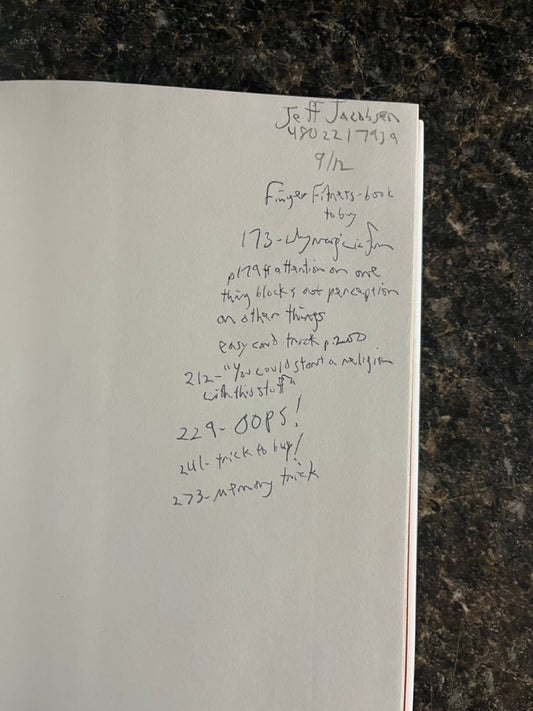 Jeff Jacobsen
4802217939
9/12
Finger Fitness-book
to buy
173-why magic is fun
p179 # attention on one
thing blocks out perception
on other things
easy card trick p.200
212-"You could start a religion
with this stuff"
229- OOPS!
241- trick to buy!
273-memory trick